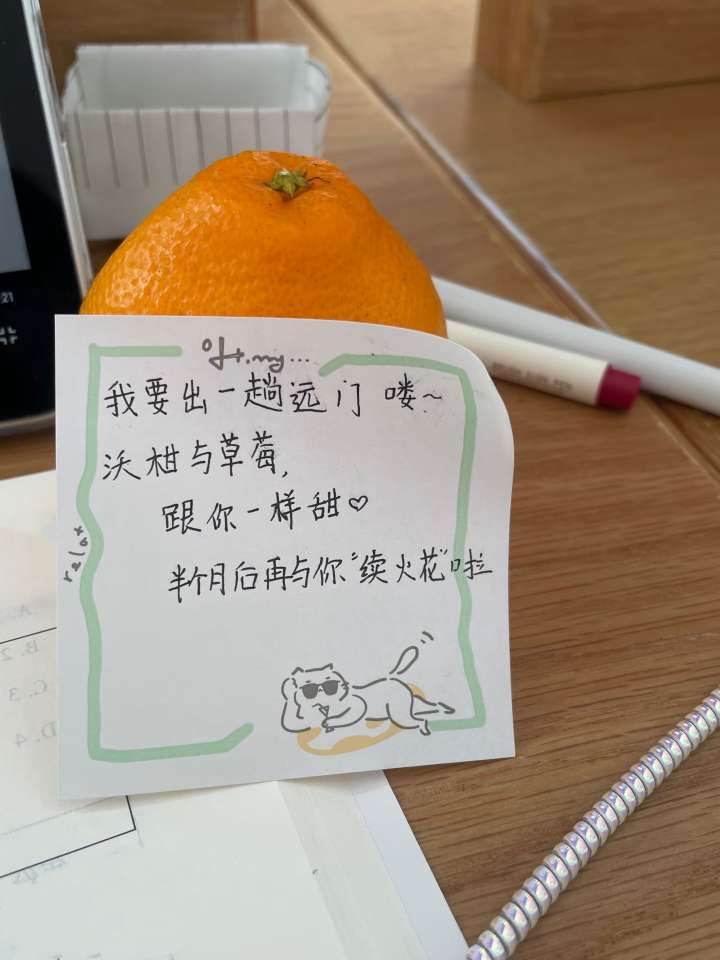 oh.my...
我要出一趟远门 喽~
沃柑与草莓,
跟你一样甜♡
半个月后再与你“续火花”啦
relax
21
A.
B. 2
C. 3
D. 4